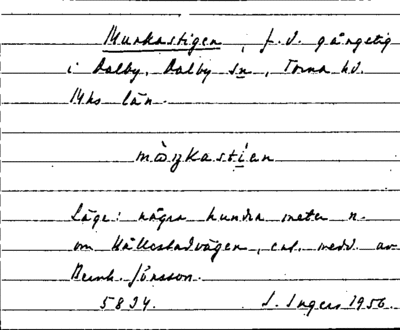 Munkastigen, f.d. gångstig
i Dalby, Dalby sn, Torna hd.
Mhs län.
mùŋkastían
Läge: några hundra meter n.
om Hällestadvägen, enl. medd. av
Bernh. Jönsson.
5834. I. Ingers 1956.